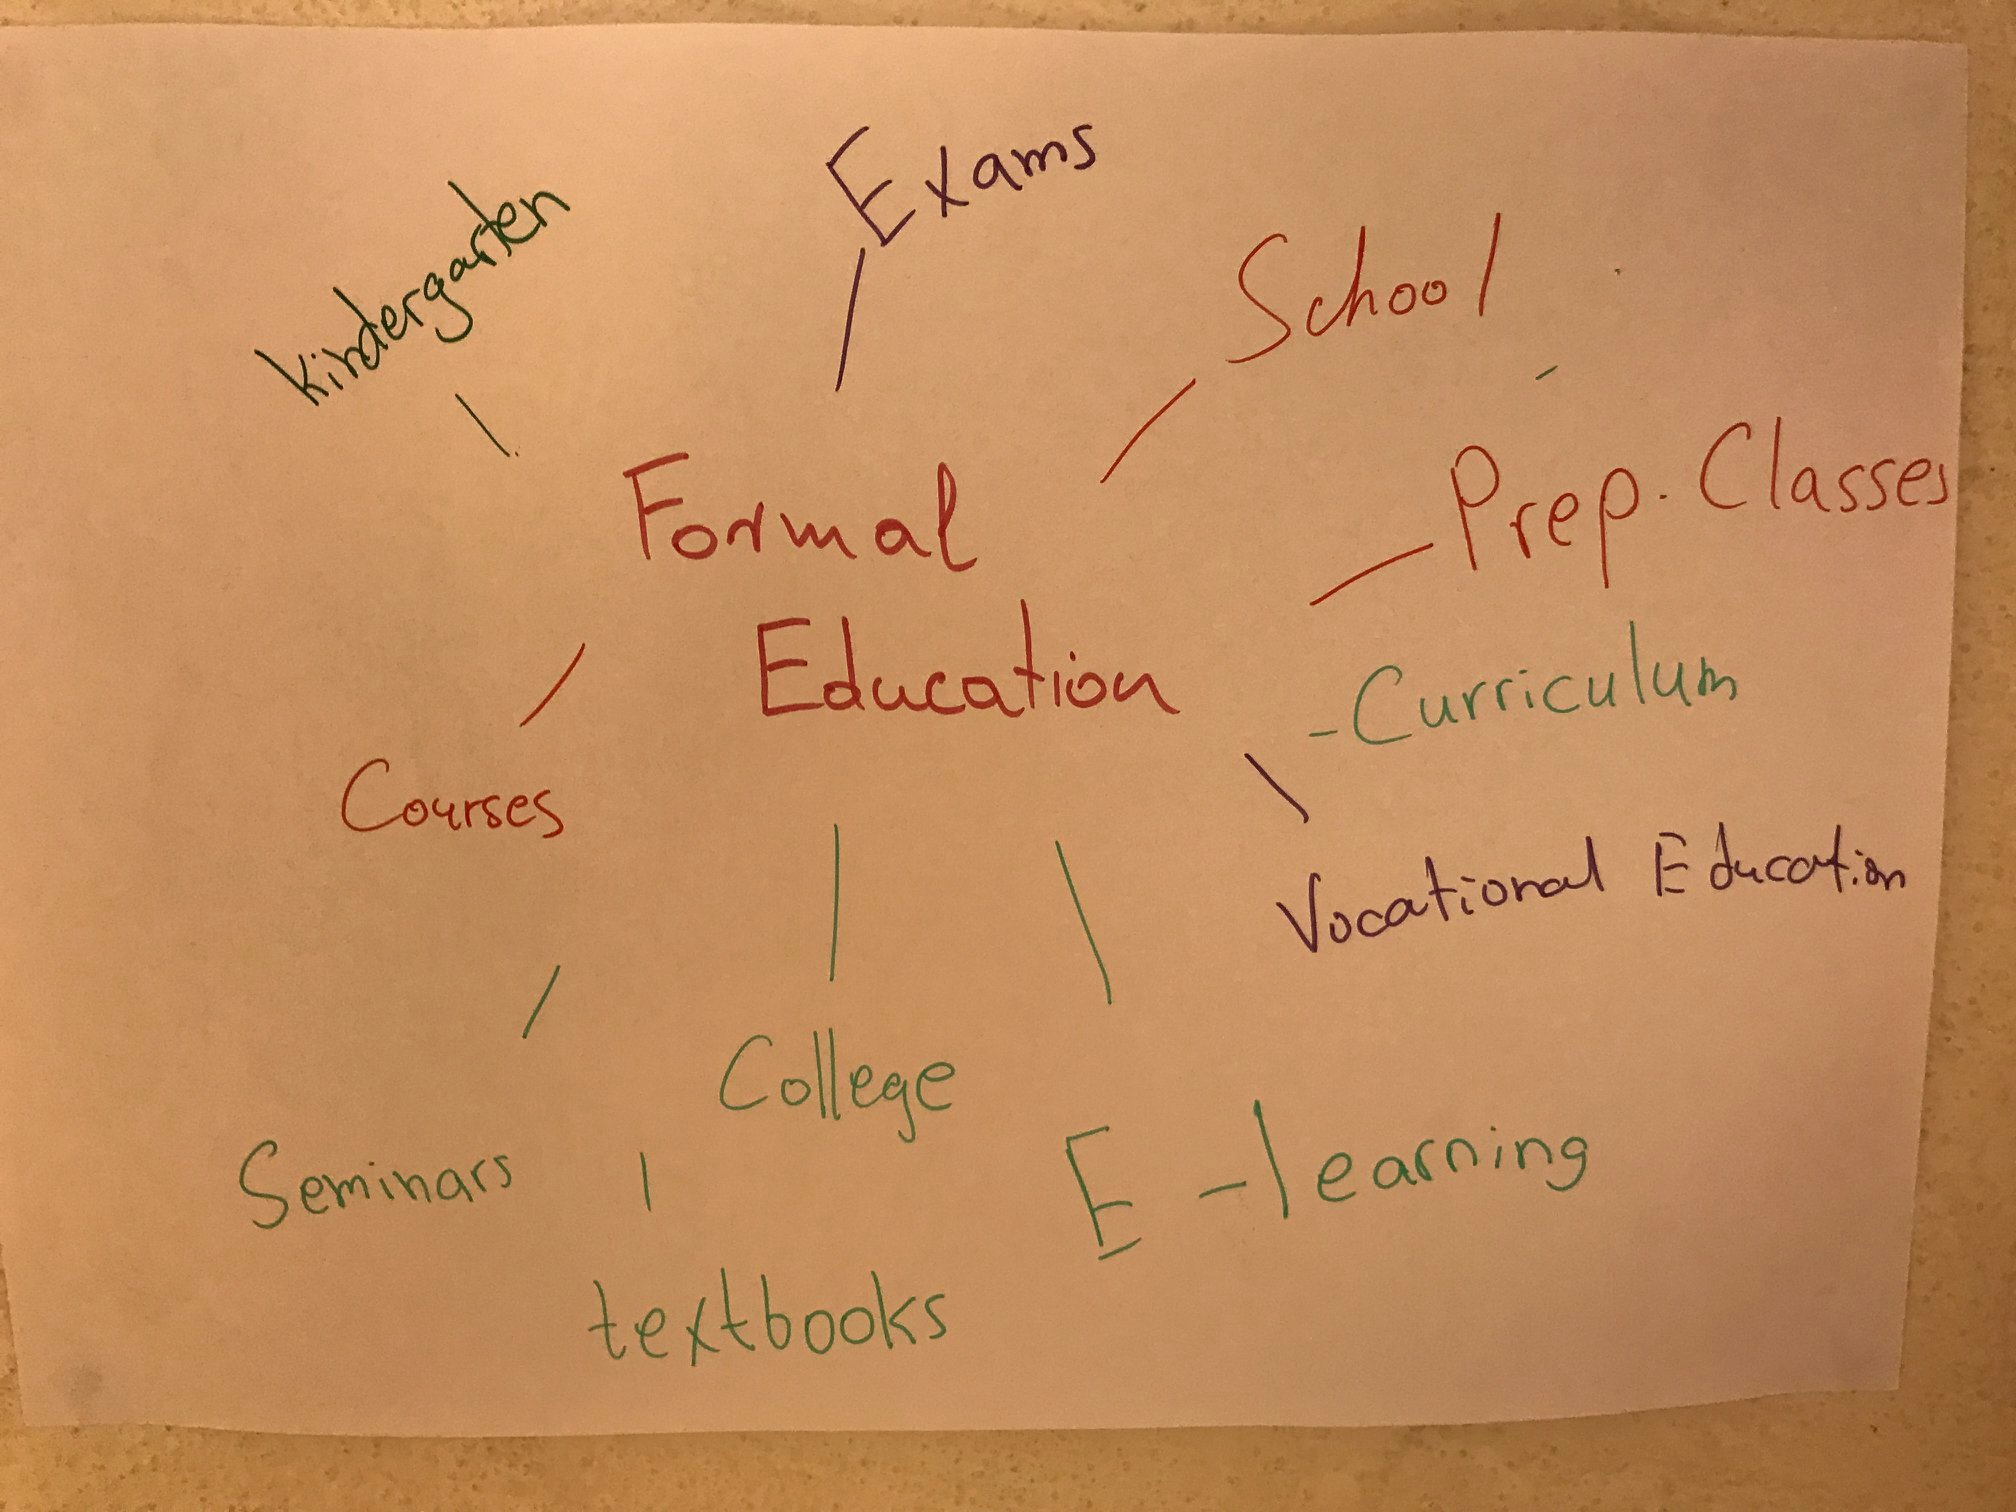 Exams
kindergarten
School
Prep. Classes
Formal
Education
- Curriculum
Courses
Vocational Education
College
E-learning
Seminars
textbooks